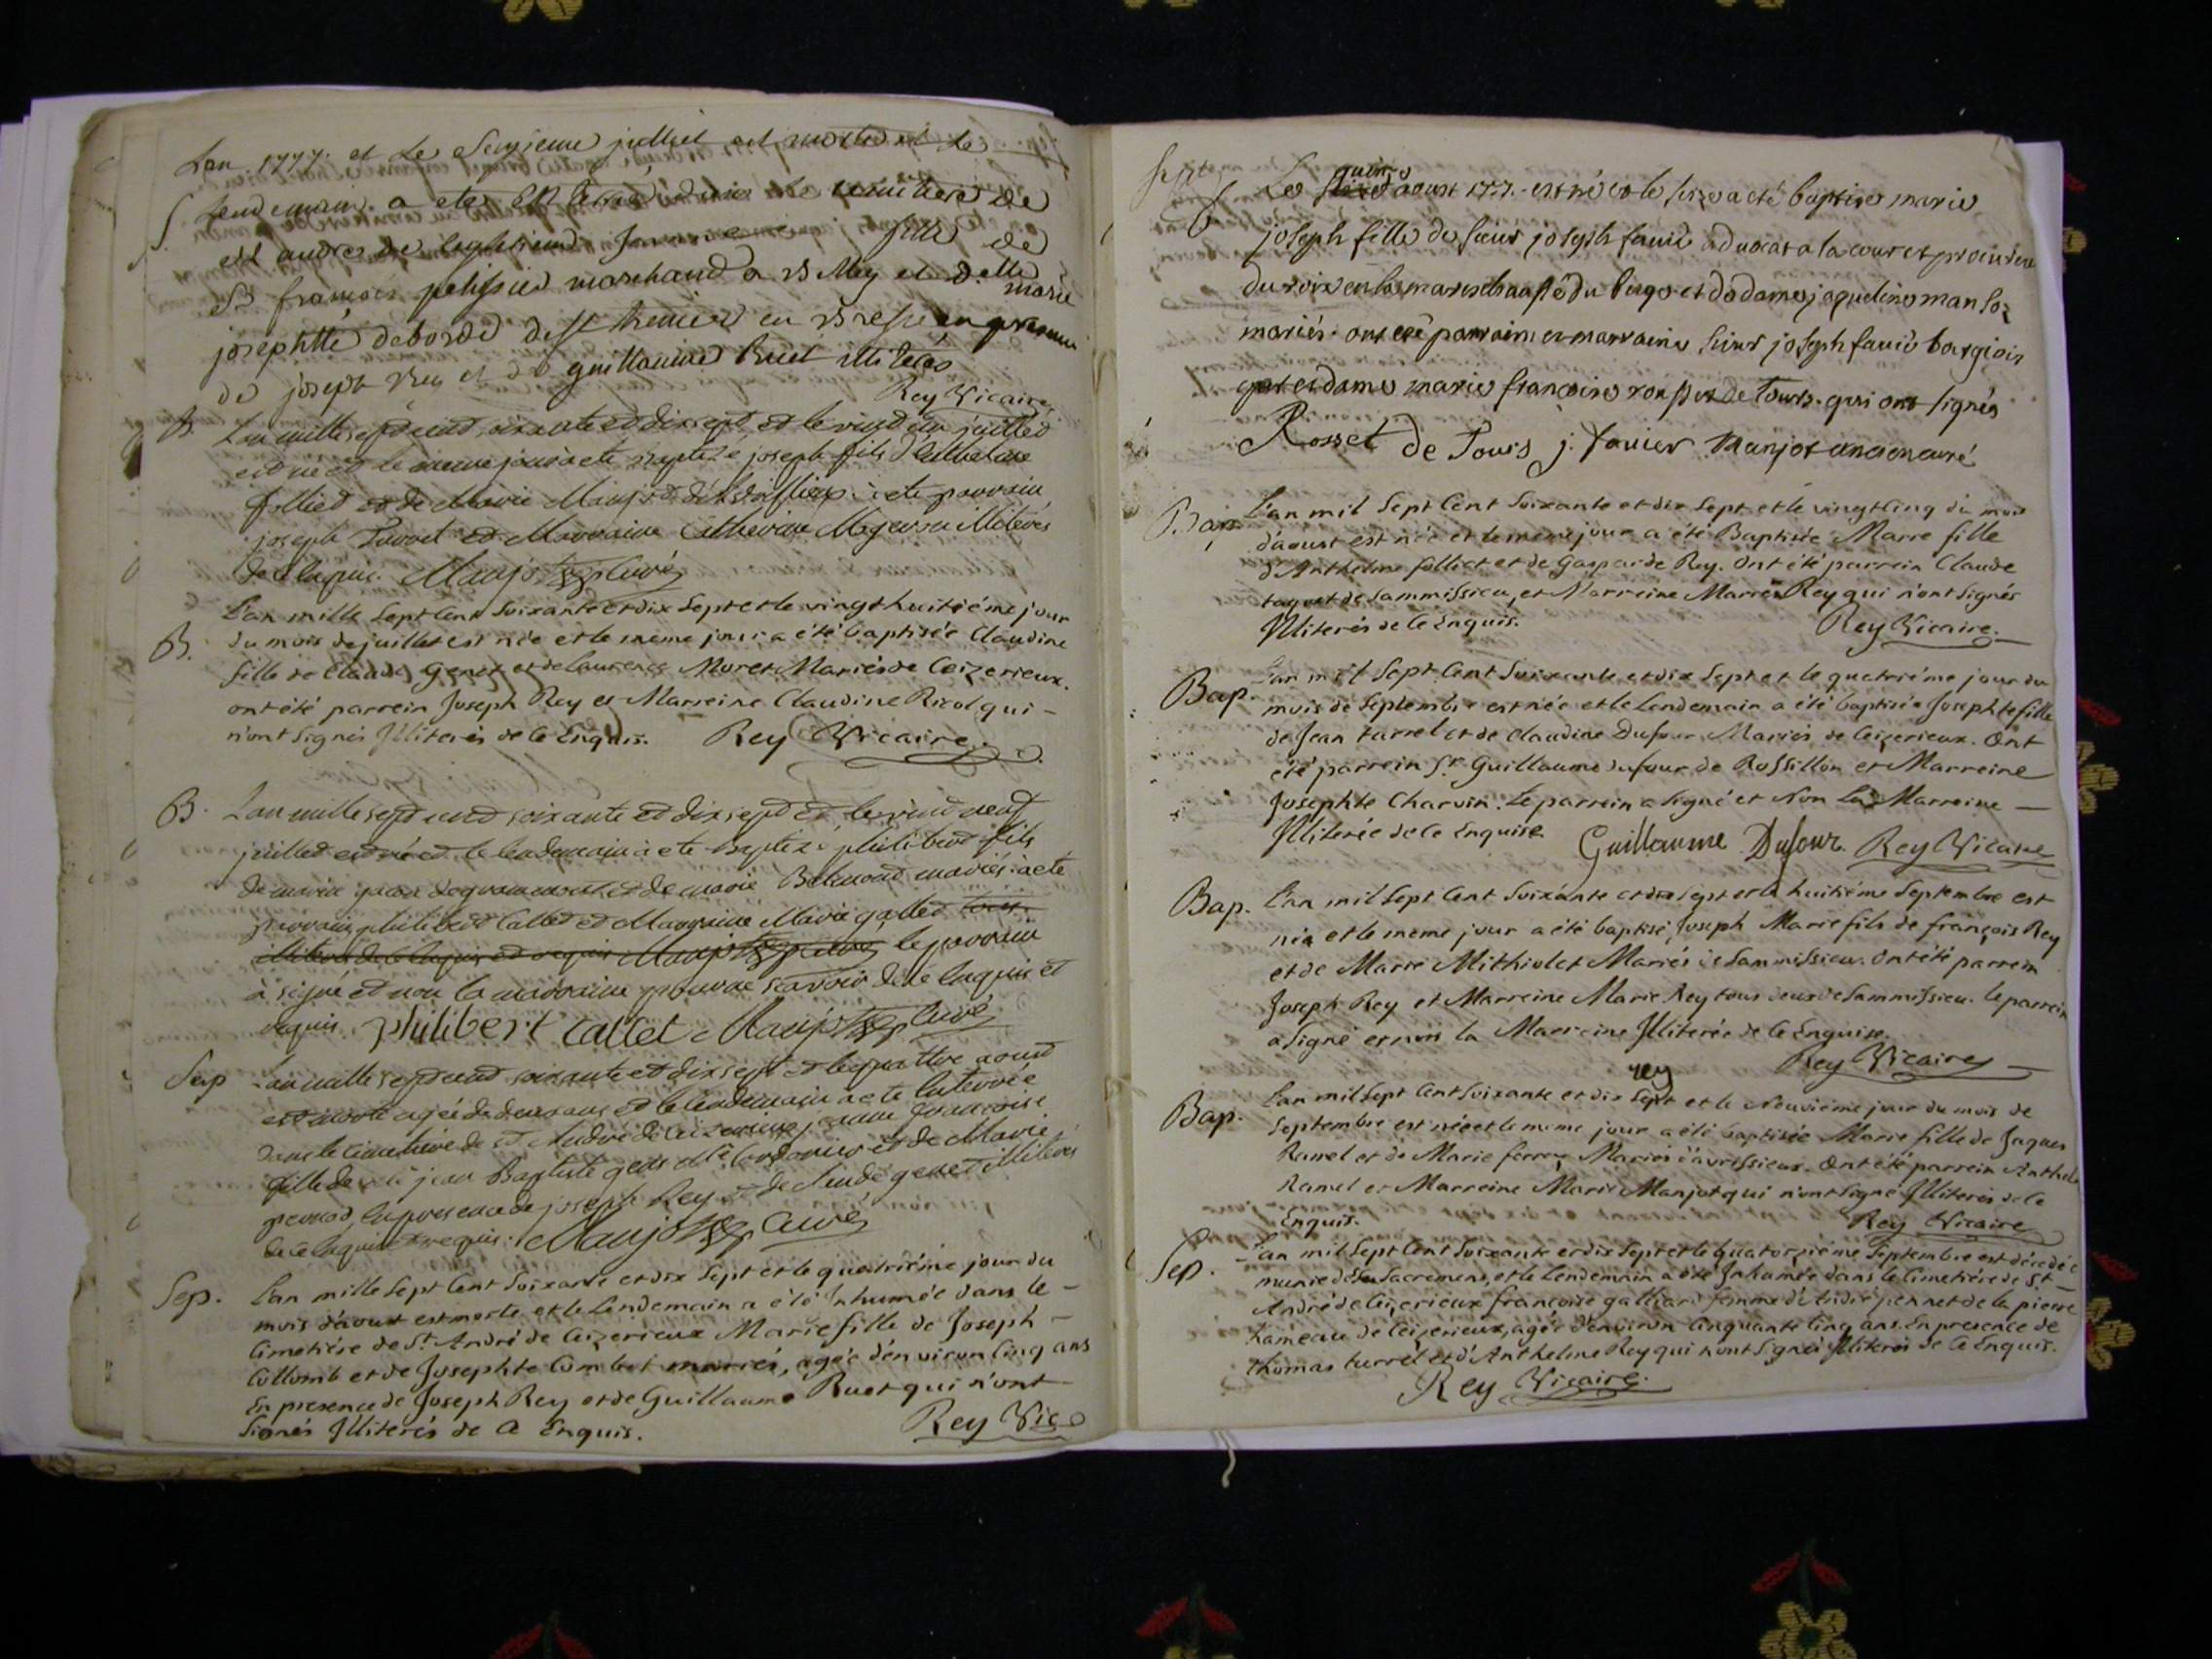 Lan 1777. et le seizieme julliet est morte et le
S. lendemain a etes enterré dans le cimitiere de
st andre de fille de
Sr francois pelissier marchand a et delle marie
josephtte deborde de st en en presence
de joseph Rey et de guillaume Ruet illiteres
Rey Vicaire
B. L'an mille sept cent soixante et dix sept et le vint un juilled
est né et le meme jour a ete baptizé joseph fils d'Anthelme
follied et de Marie Manjod a ete parrain
joseph et Marraine Catherine illiterés
de ce enquis. Manjot curé
L'an mille Sept Cent Soixante et dix Sept et le vingt huitiéme jour
B. du mois de juillet est née et le même jour a été baptisée Claudine
fille de Claude Genet et de Laurence Moret Mariés de Ceizerieux.
ont été parrein Joseph Rey et Marreine Claudine Ricol qui –
n'ont Signés Illiterés de Ce Enquis. Rey Vicaire.
B. L'an mille sept cent soixante et dix sept et le vint neuf
juilled est né et le lendemain a ete baptizé philibert fils
de et de marie Belmond mariés. a ete
parrain philibert Callet et Marraine Marie galled
illiterés de ce enquis et requis Manjot curé le parrain
a signé et non la marraine pour ne scavoir de ce enquis et
requis. philibert Callet Manjot curé
Sep L'an mille sept cent soixante et dix sept et le quattre aoust
est morte agée de deux ans et le lendemain a ete Enterrée
dans le cimetiere de st André de Ceizerieux jeanne francoise
fille de jean Baptiste gens et de Marie
pernod, En presence de joseph Rey et de Claude genet illiterés
de ce enquis et requis. Manjot curé
Sep. L'an mille Sept Cent Soixante et dix Sept et le quatriéme jour du
mois d'Aoust est morte et le Lendemain a été Inhumée dans le –
Cimetiére de St. André de Ceizerieux Marie fille de Joseph –
Collomb et de Josephte Combet mariés, agée d'environ Cinq ans
En presence de Joseph Rey et de Guillaume Ruet qui n'ont
Signés Illiterés de Ce Enquis. Rey Vic
Le quinze aoust 1777. est né et le seize a eté baptisee marie
joseph fille de sieur joseph favié advocat a la cour et procureur
du roi en la marechaussé du bugei et de dame jaqueline manjot
mariés. ont eté parrain et marraine sieur joseph favié borgiois
et dame marie francoise rosset de Tours. qui ont signés
Rosset de Tours j. favier Manjot curé
Bap. L'an mil Sept Cent Soixante et dix Sept et le vingt Cinq du mois
d'aoust est née et le même jour a été Baptisée Marie fille
d'Anthelme folliet et de Gasparde Rey. Ont été parrein Claude
tayvet de Sammissieu, et Marreine Marie Rey qui n'ont Signés
Illiterés de Ce Enquis. Rey Vicaire.
Bap. L'an mil Sept Cent Soixante et dix Sept et le quatriéme jour du
mois de Septembre est née et le Lendemain a été baptisée Josephte fille
de Jean turrel et de Claudine Dufour Mariés de Ceizerieux. Ont
été parrein Sr. Guillaume Dufour de Rossillon et Marreine
Josephte Charvin. Le parrein a Signé et Non La Marreine –
Illiterée de Ce Enquise Guillaume Dufour. Rey Vicaire
Bap. L'an mil Sept Cent Soixante et dix Sept et le huitiéme Septembre est
née et le meme jour a été baptisé Joseph Marie fils de françois Rey
et de Marie Mithiolet Mariés de Sammissieu. Ont été parrein
Joseph Rey et Marreine Marie Rey tous deux de Sammissieu. le parrein
a Signé et non la Marreine Illiterée de Ce Enquise.
rey Rey Vicaire
Bap. L'an mil Sept Cent Soixante et dix Sept et le Neuviéme jour du mois de
Septembre est née et le même jour a été baptisée Marie fille de Jaques
Ramel et de Marie ferrey Mariés d'avrissieux. Ont été parrein Anthel
Ramel et Marreine Marie Manjot qui n'ont Signé Illiterés de Ce
Enquis. Rey Vicaire
Sep. L'an mil Sept Cent Soixante et dix Sept et le Quatorziéme Septembre est décedée
munie des Sacremens, et le Lendemain a été Inhumée dans le Cimetiére de St. –
André de Ceizerieux françoise galliard femme d'André pernet de la pierre
hameau de Ceizerieux, agée d'environ Cinquante Cinq ans. En presence de
thomas turrel et d'Anthelme Rey qui n'ont Signés Illiterés de Ce Enquis.
Rey Vicaire.